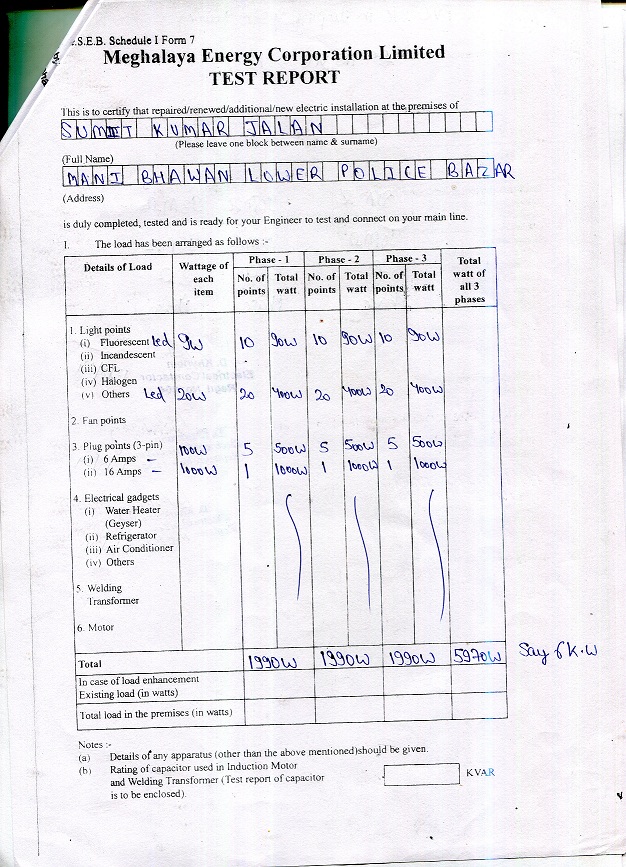 .S.E.B. Schedule I Form 7
Meghalaya Energy Corporation Limited
TEST REPORT
This is to certify that repaired/renewed/additional/new electric installation at the premises of
SUMIT KUMAR JALAN
(Please leave one block between name & surname)
(Full Name)
MANI BHAWAN LOWER POLICE BAZAR
(Address)
is duly completed, tested and is ready for your Engineer to test and connect on your main line.
I. The load has been arranged as follows :-
Details of Load Wattage of each item Phase - 1 Phase - 2 Phase - 3 Total watt of all 3 phases
No. of points Total watt No. of points Total watt No. of points Total watt
1. Light points
(i) Fluorescent Led 9W 10 90W 10 90W 10 90W
(ii) Incandescent
(iii) CFL
(iv) Halogen
(v) Others Led 20W 20 400W 20 400W 20 400W
2. Fan points
3. Plug points (3-pin)
(i) 6 Amps – 100W 5 500W 5 500W 5 500W
(ii) 16 Amps – 1000W 1 1000W 1 1000W 1 1000W
4. Electrical gadgets
(i) Water Heater
(Geyser)
(ii) Refrigerator
(iii) Air Conditioner
(iv) Others
5. Welding
Transformer
6. Motor
Total 1990W 1990W 1990W 5970W Say 6 K.W
In case of load enhancement
Existing load (in watts)
Total load in the premises (in watts)
Notes :-
(a) Details of any apparatus (other than the above mentioned)should be given.
(b) Rating of capacitor used in Induction Motor
and Welding Transformer (Test report of capacitor KVAR
is to be enclosed).